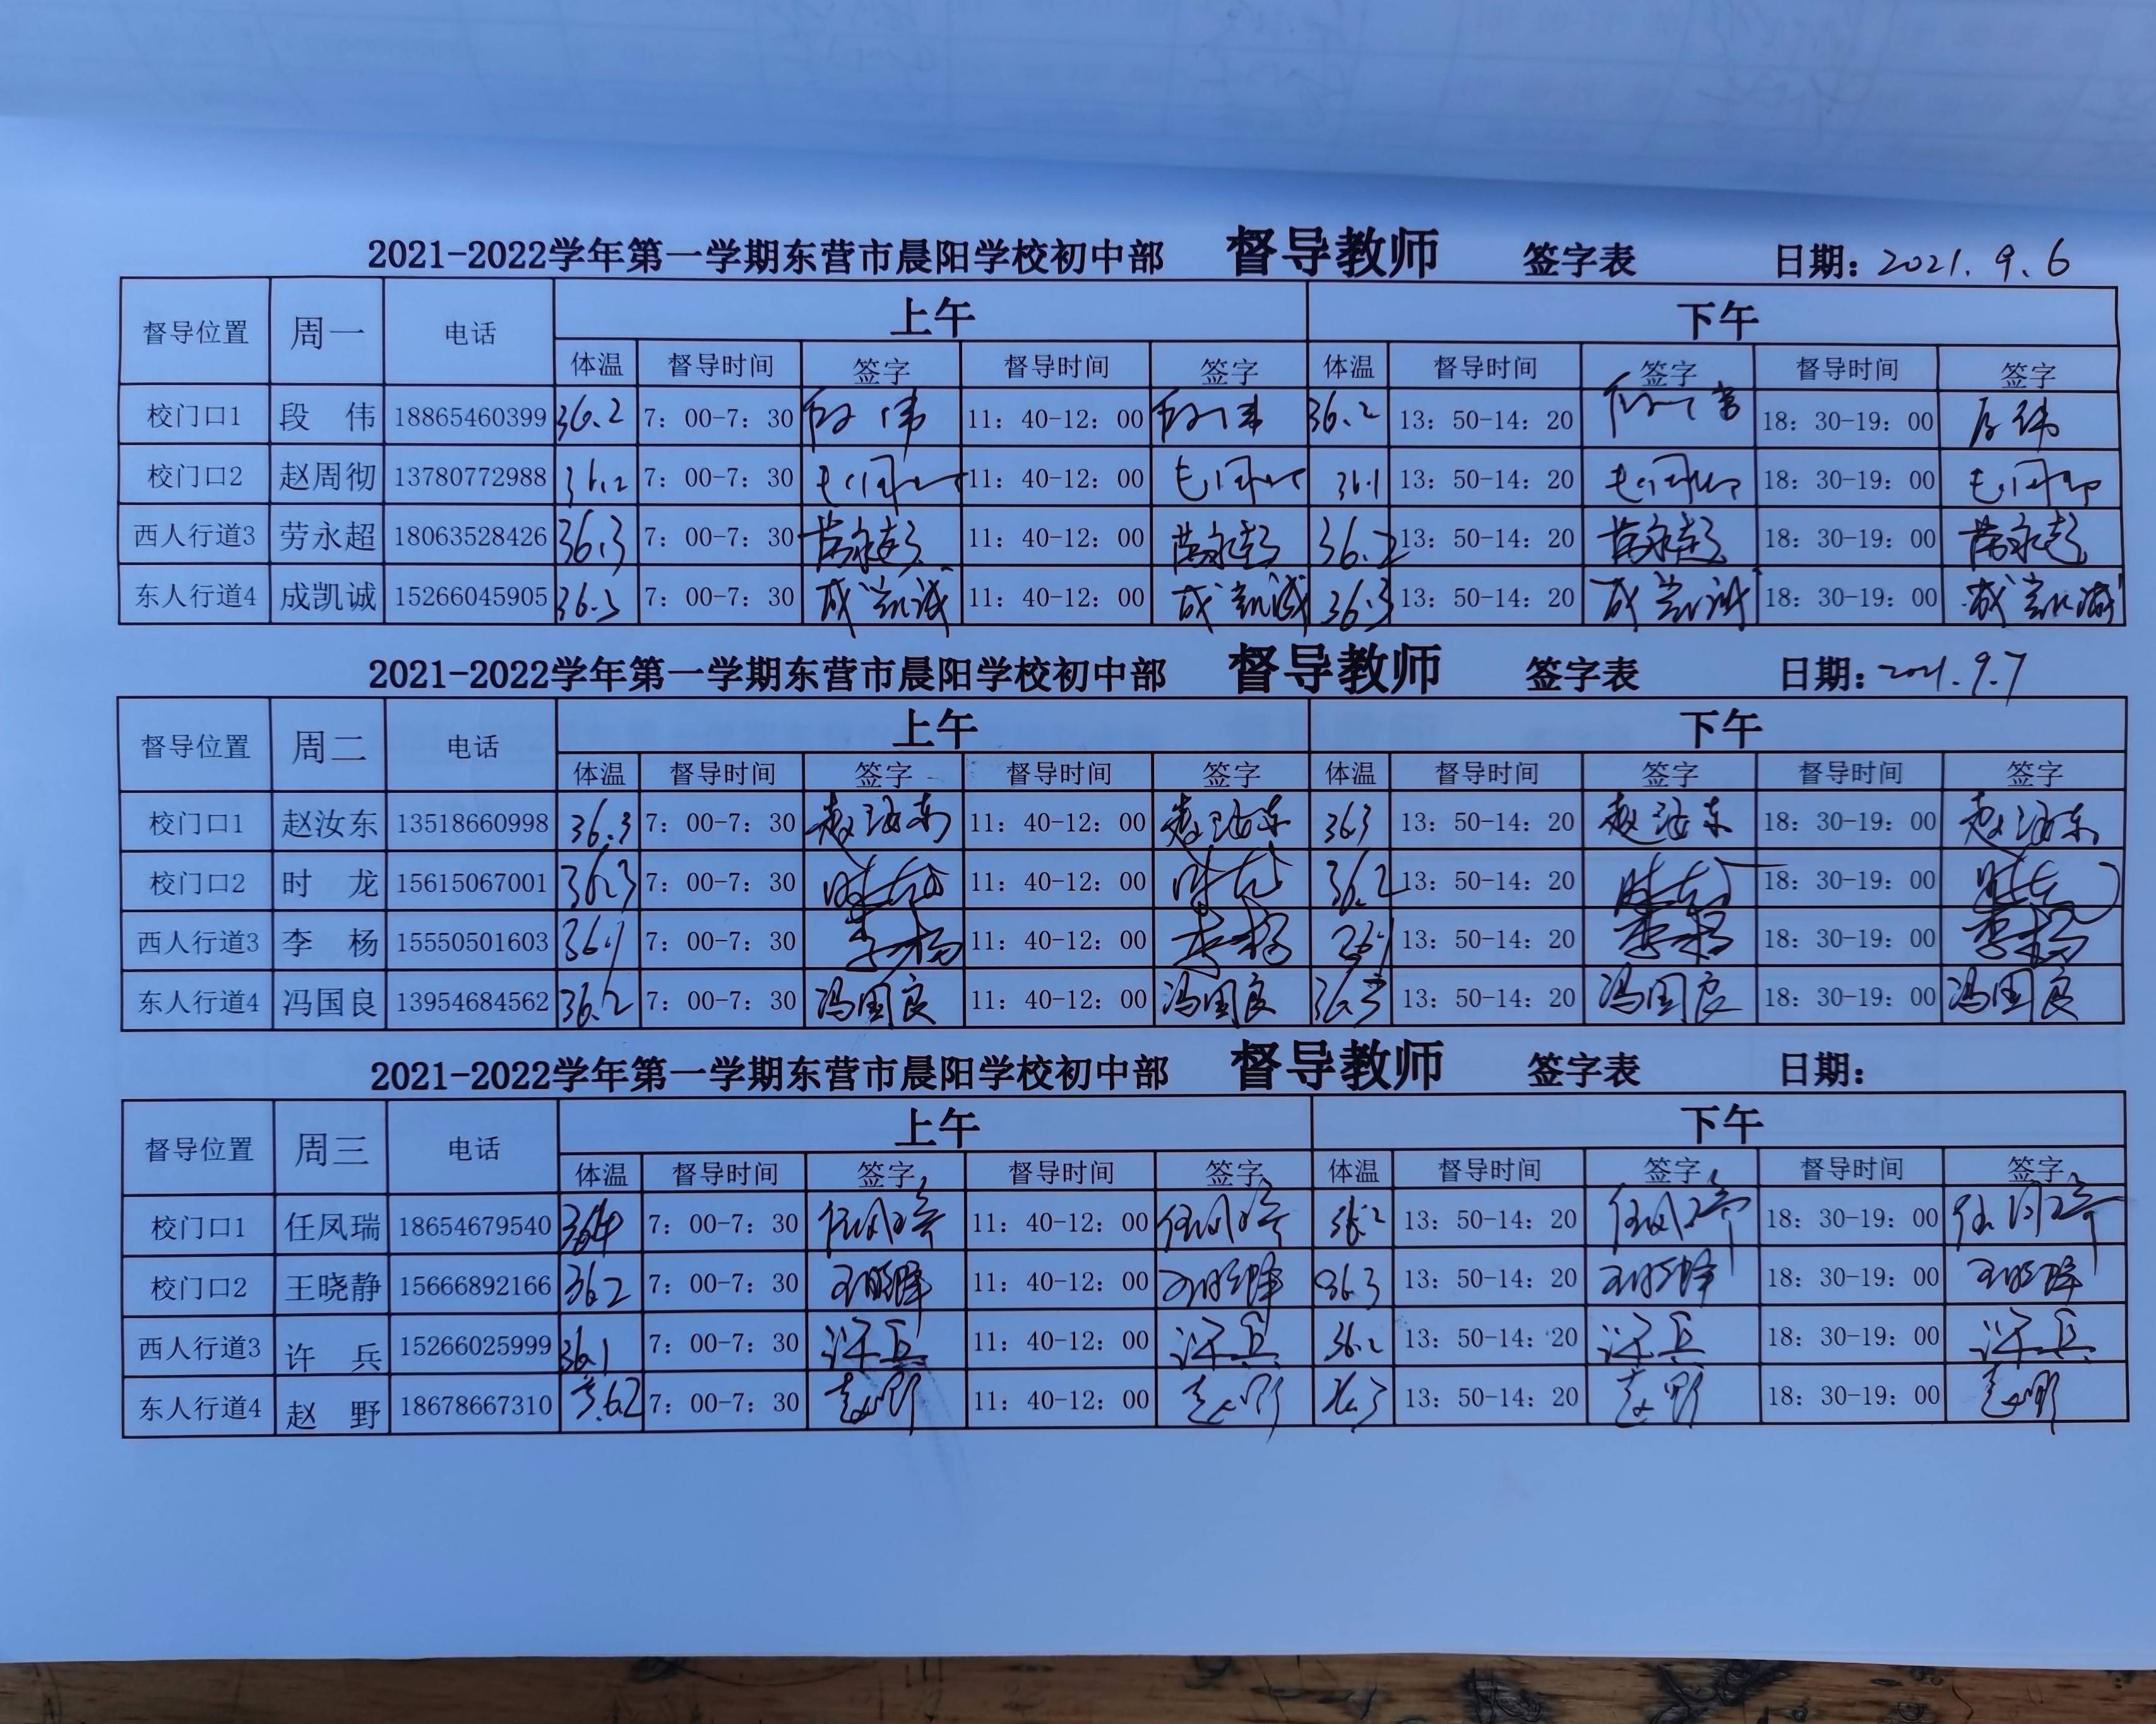 2021-2022学年第一学期东营市晨阳学校初中部 督导教师 签字表 日期: 2021.9.6
督导位置 周一 电话 上午 下午
体温 督导时间 签字 督导时间 签字 体温 督导时间 签字 督导时间 签字
校门口1 段 伟 18865460399 36.2 7: 00-7: 30 段伟 11: 40-12: 00 段伟 36.2 13: 50-14: 20 段伟 18: 30-19: 00 段伟
校门口2 赵周彻 13780772988 36.2 7: 00-7: 30 11: 40-12: 00 36.1 13: 50-14: 20 18: 30-19: 00
西人行道3 劳永超 18063528426 36.3 7: 00-7: 30 劳永超 11: 40-12: 00 劳永超 36.2 13: 50-14: 20 劳永超 18: 30-19: 00 劳永超
东人行道4 成凯诚 15266045905 36.3 7: 00-7: 30 成凯诚 11: 40-12: 00 成凯诚 36.3 13: 50-14: 20 成凯诚 18: 30-19: 00 成凯诚
2021-2022学年第一学期东营市晨阳学校初中部 督导教师 签字表 日期: 2021.9.7
督导位置 周二 电话 上午 下午
体温 督导时间 签字 督导时间 签字 体温 督导时间 签字 督导时间 签字
校门口1 赵汝东 13518660998 36.3 7: 00-7: 30 赵汝东 11: 40-12: 00 赵汝东 36.3 13: 50-14: 20 赵汝东 18: 30-19: 00 赵汝东
校门口2 时 龙 15615067001 36.3 7: 00-7: 30 时龙 11: 40-12: 00 时龙 36.2 13: 50-14: 20 时龙 18: 30-19: 00 时龙
西人行道3 李 杨 15550501603 36.1 7: 00-7: 30 李杨 11: 40-12: 00 李杨 36.1 13: 50-14: 20 李杨 18: 30-19: 00 李杨
东人行道4 冯国良 13954684562 36.2 7: 00-7: 30 冯国良 11: 40-12: 00 冯国良 36.3 13: 50-14: 20 冯国良 18: 30-19: 00 冯国良
2021-2022学年第一学期东营市晨阳学校初中部 督导教师 签字表 日期:
督导位置 周三 电话 上午 下午
体温 督导时间 签字 督导时间 签字 体温 督导时间 签字 督导时间 签字
校门口1 任凤瑞 18654679540 36.4 7: 00-7: 30 任凤瑞 11: 40-12: 00 任凤瑞 36.2 13: 50-14: 20 任凤瑞 18: 30-19: 00 任凤瑞
校门口2 王晓静 15666892166 36.2 7: 00-7: 30 王晓静 11: 40-12: 00 王晓静 36.3 13: 50-14: 20 王晓静 18: 30-19: 00 王晓静
西人行道3 许 兵 15266025999 36.1 7: 00-7: 30 许兵 11: 40-12: 00 许兵 36.2 13: 50-14: 20 许兵 18: 30-19: 00 许兵
东人行道4 赵 野 18678667310 36.2 7: 00-7: 30 赵野 11: 40-12: 00 赵野 36.3 13: 50-14: 20 赵野 18: 30-19: 00 赵野